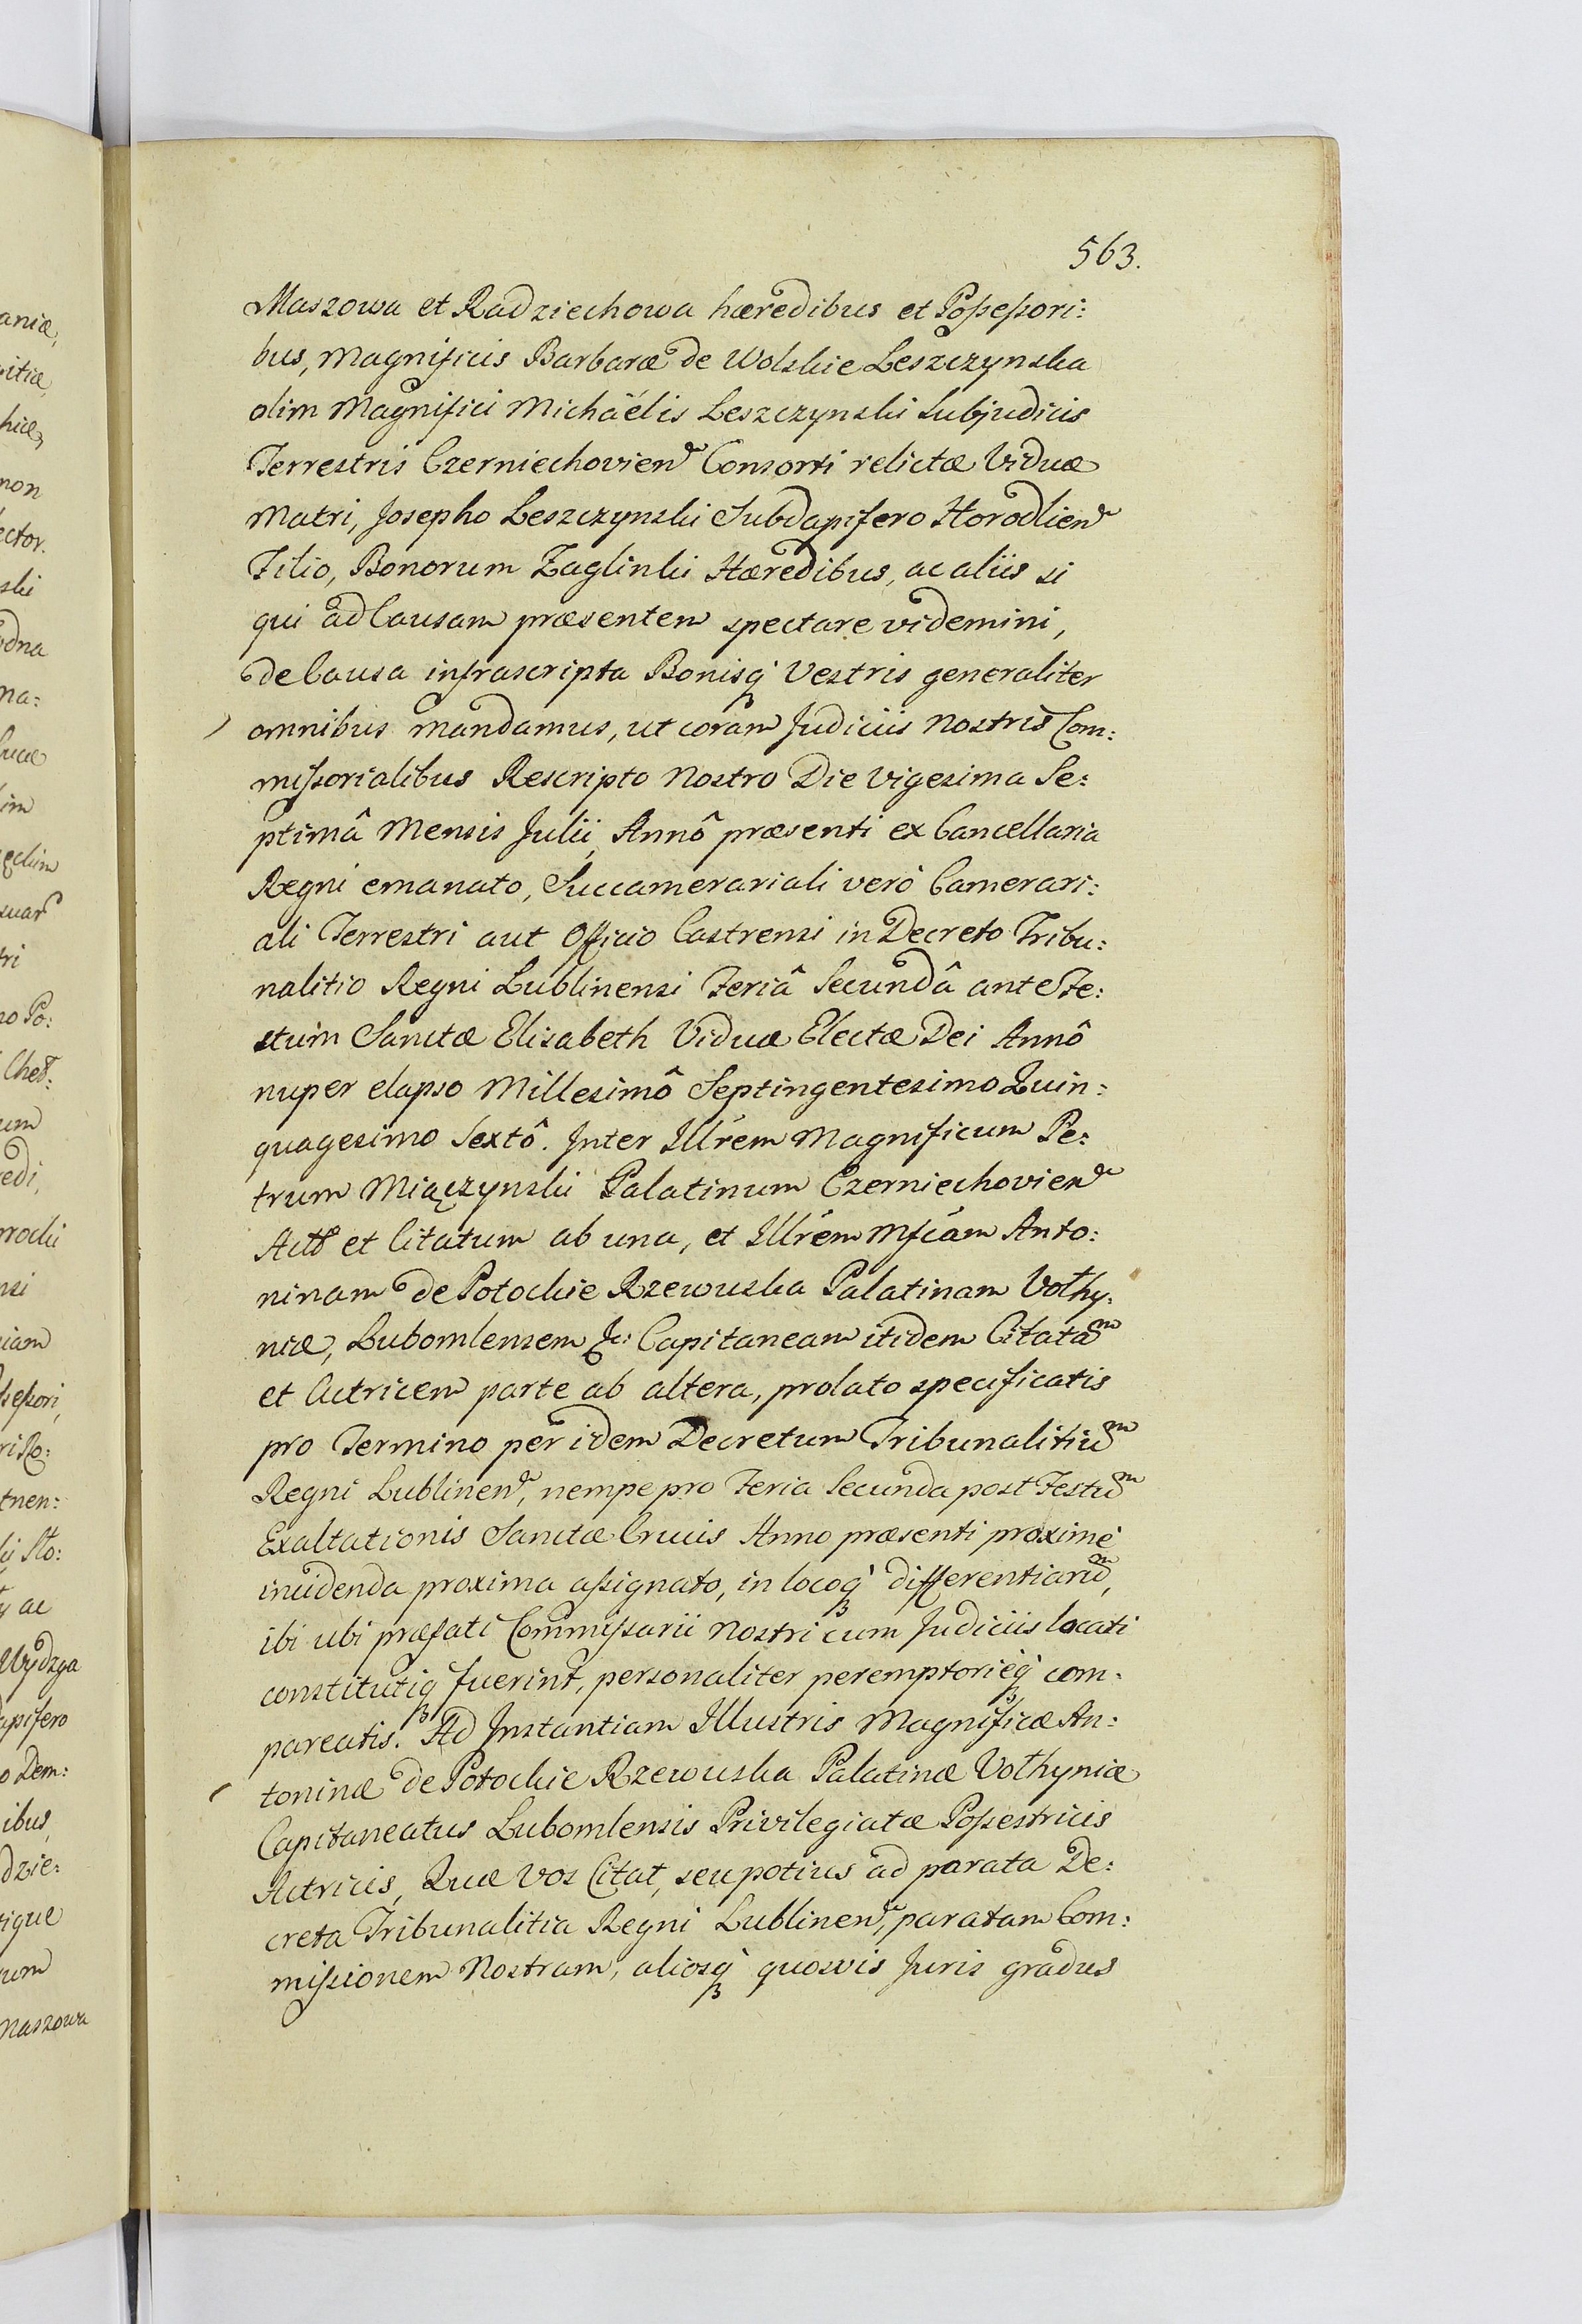 563.
Maszowa et Radziechowa hæredibus et Possessori:
bus, Magnificis Barbaræ de Wolskie Leszczynska
olim Magnifici Michaélis Leszczynski Subjudicis
Terrestris Czerniechovien. Consorti relictæ Viduæ
Matri, Josepho Leszczynski Subdapifero Horodlien.
Filio, Bonorum Zaglinki Hæredibus, ac aliis si
qui ad Causam præsentem spectare videmini,
de Causa infrascripta Bonisq́ Vestris generaliter
omnibus mandamus, ut coram Judiciis Nostris Com:
missorialibus Rescripto Nostro Die Vigesima Se:
ptimâ Mensis Julii, Annô præsenti ex Cancellaria
Regni emanato, Succamerariali verò Camerari:
ali Terrestri aut Officio Castrensi in Decreto Tribu:
nalitio Regni Lublinensi Feriâ Secundâ ante Fe:
stum Sanctæ Elisabeth Viduæ Electæ Dei Annô
nuper elapso Millesimô Septingentesimo Quin:
quagesimo Sextô. Inter Illrem Magnificum Pe:
trum Miączynski Palatinum Czerniechovien.
Act. et Citatum ab una, et Illrem Mfcam Anto:
ninam de Potockie Rzewuska Palatinam Volhy:
niæ, Lubomlensem &c: Capitaneam itidem Citatam
et Actricem parte ab altera, prolato specificatis
pro Termino per idem Decretum Tribunalitium
Regni Lublinen., nempe pro Feria Secunda post Festum
Exaltationis Sanctæ Crucis Anno præsenti proximè
incidenda proxima assignato, in locoq́ differentiarum,
ibi ubi præfati Commissarii Nostri cum Judiciis locati
constitutiq́ fuerint, personaliter peremptorieq́ com:
pareatis. Ad Instantiam Illustris Magnificæ An:
toninæ de Potockie Rzewuska Palatinæ Volhyniæ
Capitaneatus Lubomlensis Privilegiatæ Possestricis
Actricis, Quæ Vos Citat, seu potius ad parata De:
creta Tribunalitia Regni Lublinen., paratam Com:
missionem Nostram, aliosq́ quosvis Juris gradus